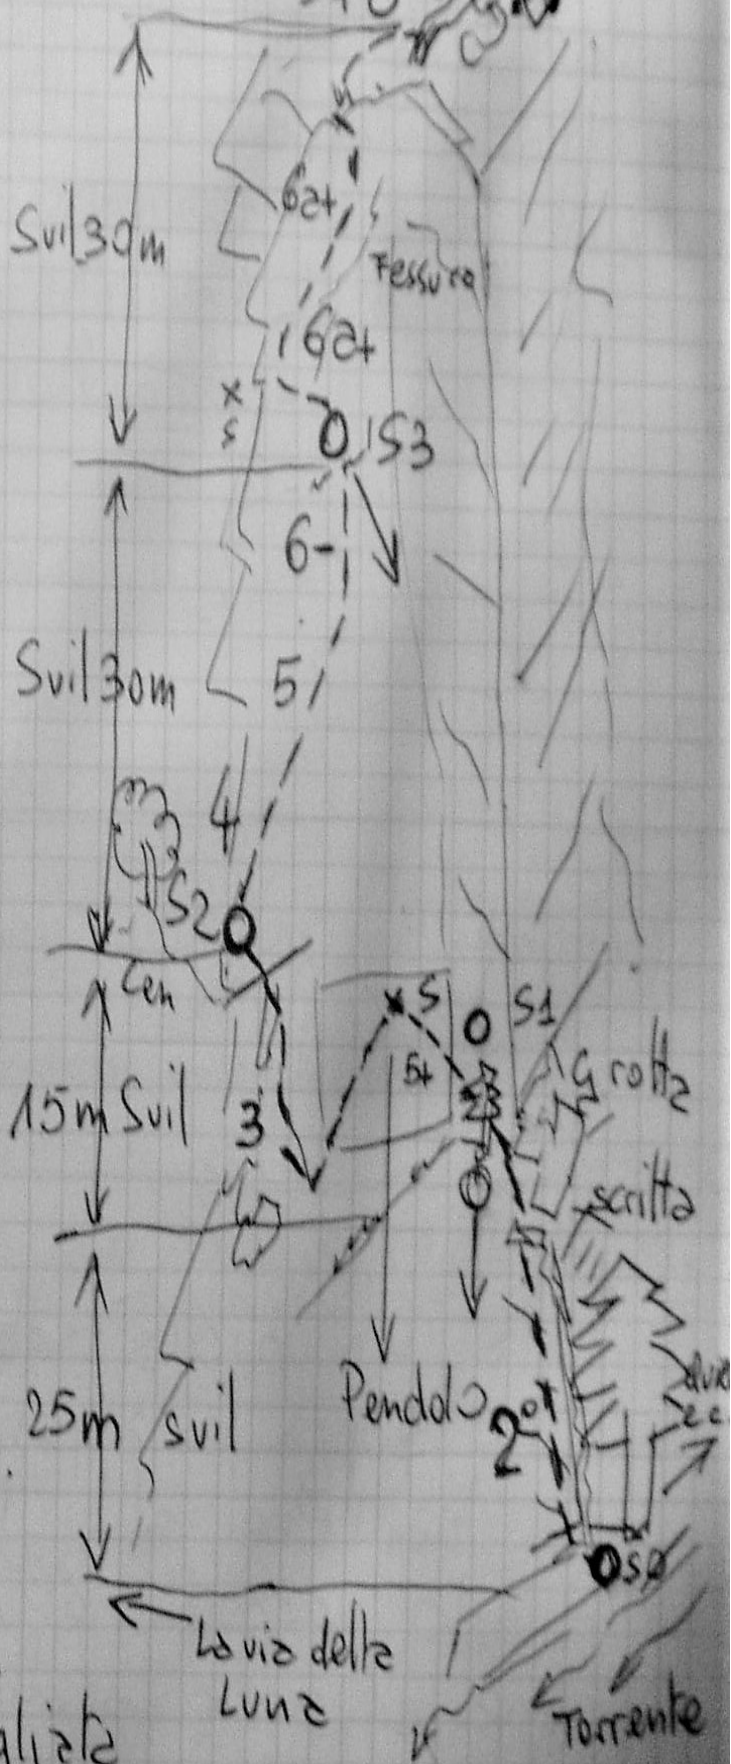 6a+
Svil 30m
Fessura
6a+
x
s
S3
6-
Svil 30m
5
4
S2
Cen
S1
x S
5+
Grotta
15m Svil
3
scritta
25m svil
Pendolo
2°
S0
La via della
Luna
Torrente